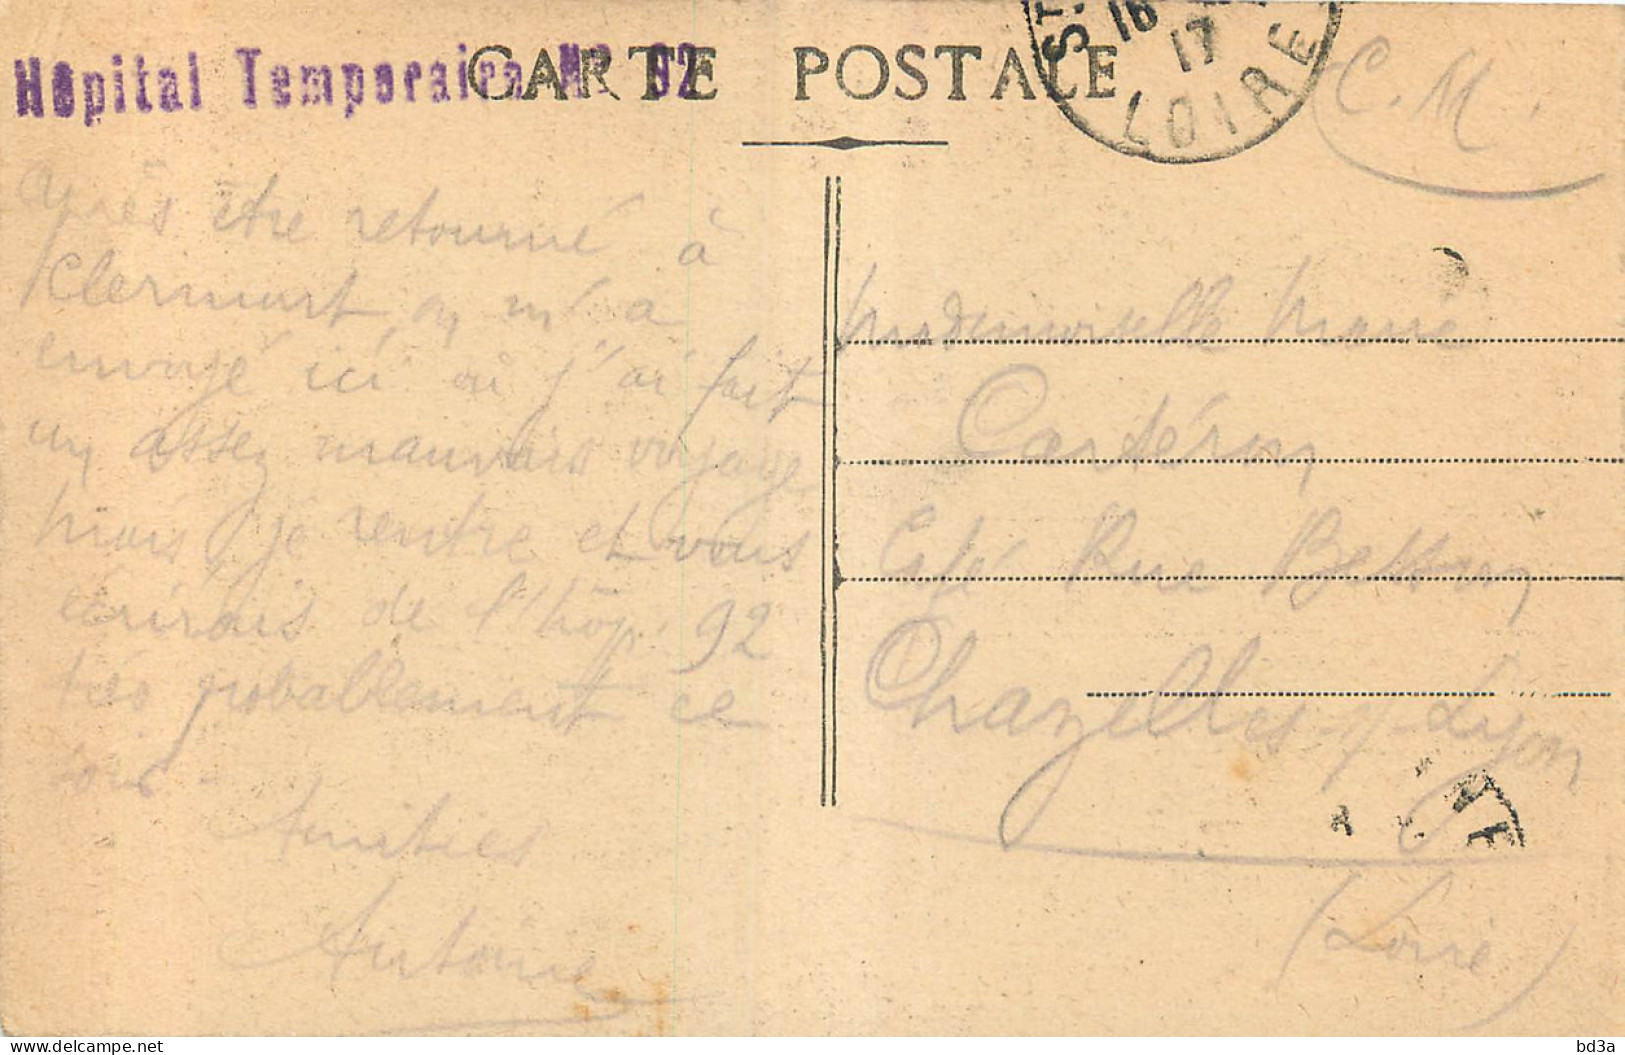 Hôpital Temporaire Nº 92
CARTE POSTALE
ST
16
17
LOIRE
C. M.
Après être retourné à
Clermont on m'a
envoyé ici où j'ai fait
un assez mauvais voyage
mais je rentre et vous
écrirais de l'hôp. 92
très probablement ce
soir
Amitiés
Antoine
Mademoiselle Marie
Cartéron
Café Rue Betton
Chazelles-s/-Lyon
(Loire)
delcampe.net
bd3a